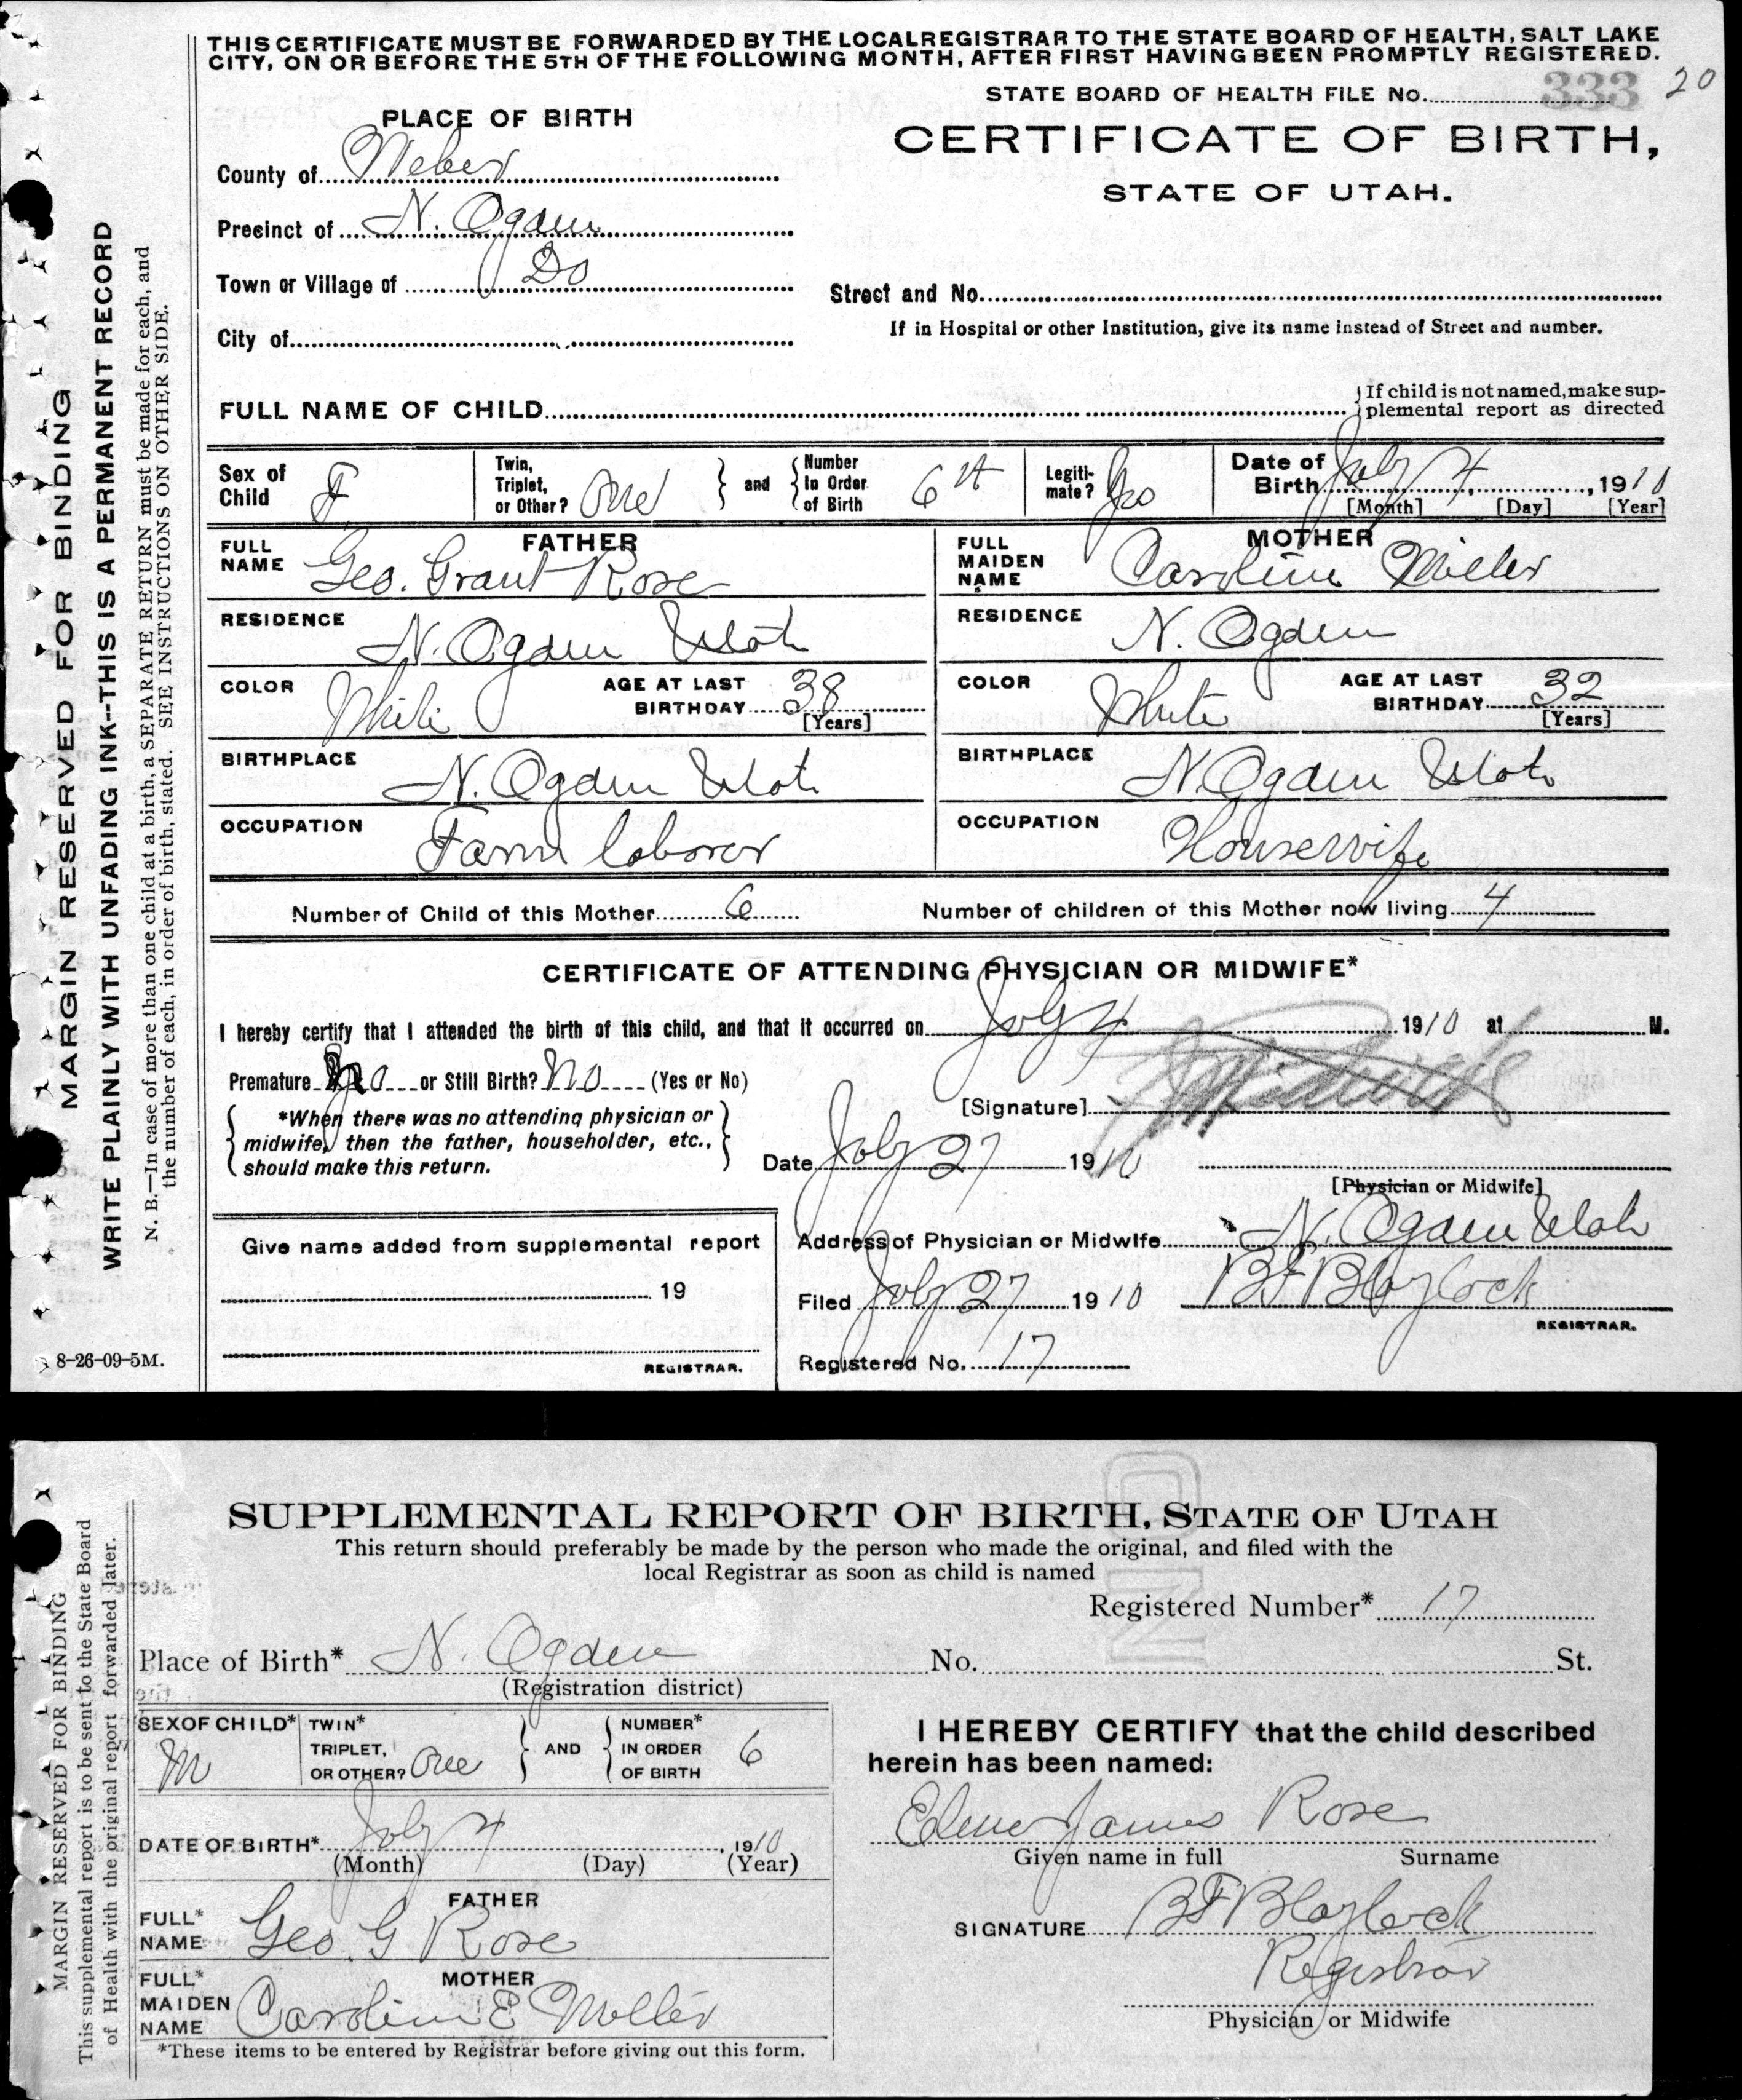 THIS CERTIFICATE MUST BE FORWARDED BY THE LOCAL REGISTRAR TO THE STATE BOARD OF HEALTH, SALT LAKE
CITY, ON OR BEFORE THE 5TH OF THE FOLLOWING MONTH, AFTER FIRST HAVING BEEN PROMPTLY REGISTERED.
STATE BOARD OF HEALTH FILE No. 333 20
PLACE OF BIRTH
CERTIFICATE OF BIRTH,
STATE OF UTAH.
County of Weber
Precinct of N. Ogden
Town or Village of Do
Street and No.
If in Hospital or other Institution, give its name instead of Street and number.
City of
FULL NAME OF CHILD
If child is not named, make sup-
plemental report as directed
Sex of Child F
Twin, Triplet, or Other? One and Number In Order of Birth 6th
Legiti-mate? Yes
Date of Birth July 4, 1910
[Month] [Day] [Year]
FATHER
FULL NAME Geo. Grant Rose
MOTHER
FULL MAIDEN NAME Caroline Miller
RESIDENCE N. Ogden Utah
RESIDENCE N. Ogden
COLOR White AGE AT LAST BIRTHDAY 38 [Years]
COLOR White AGE AT LAST BIRTHDAY 32 [Years]
BIRTHPLACE N. Ogden Utah
BIRTHPLACE N. Ogden Utah
OCCUPATION Farm laborer
OCCUPATION Housewife
Number of Child of this Mother 6 Number of children of this Mother now living 4
CERTIFICATE OF ATTENDING PHYSICIAN OR MIDWIFE*
I hereby certify that I attended the birth of this child, and that it occurred on July 4 1910 at M.
Premature No or Still Birth? No (Yes or No)
*When there was no attending physician or
midwife, then the father, householder, etc.,
should make this return.
[Signature]
Date July 27 1910
[Physician or Midwife]
Address of Physician or Midwife N. Ogden Utah
Give name added from supplemental report
19
REGISTRAR.
Filed July 27 1910 BF Blaylock
REGISTRAR.
Registered No. 17
8-26-09-5M.
MARGIN RESERVED FOR BINDING
WRITE PLAINLY WITH UNFADING INK--THIS IS A PERMANENT RECORD
N. B.—In case of more than one child at a birth, a SEPARATE RETURN must be made for each, and
the number of each, in order of birth, stated. SEE INSTRUCTIONS ON OTHER SIDE.
SUPPLEMENTAL REPORT OF BIRTH, STATE OF UTAH
This return should preferably be made by the person who made the original, and filed with the
local Registrar as soon as child is named
Registered Number* 17
Place of Birth* N. Ogden No. St.
(Registration district)
SEX OF CHILD* M
TWIN* TRIPLET, OR OTHER? One AND NUMBER* IN ORDER OF BIRTH 6
I HEREBY CERTIFY that the child described
herein has been named:
Elmer James Rose
Given name in full Surname
DATE OF BIRTH* July 4, 1910
(Month) (Day) (Year)
FATHER
FULL* NAME Geo. G Rose
SIGNATURE BF Blaylock
Registrar
Physician or Midwife
MOTHER
FULL* MAIDEN NAME Caroline E Miller
*These items to be entered by Registrar before giving out this form.
MARGIN RESERVED FOR BINDING
This supplemental report is to be sent to the State Board
of Health with the original report forwarded later.